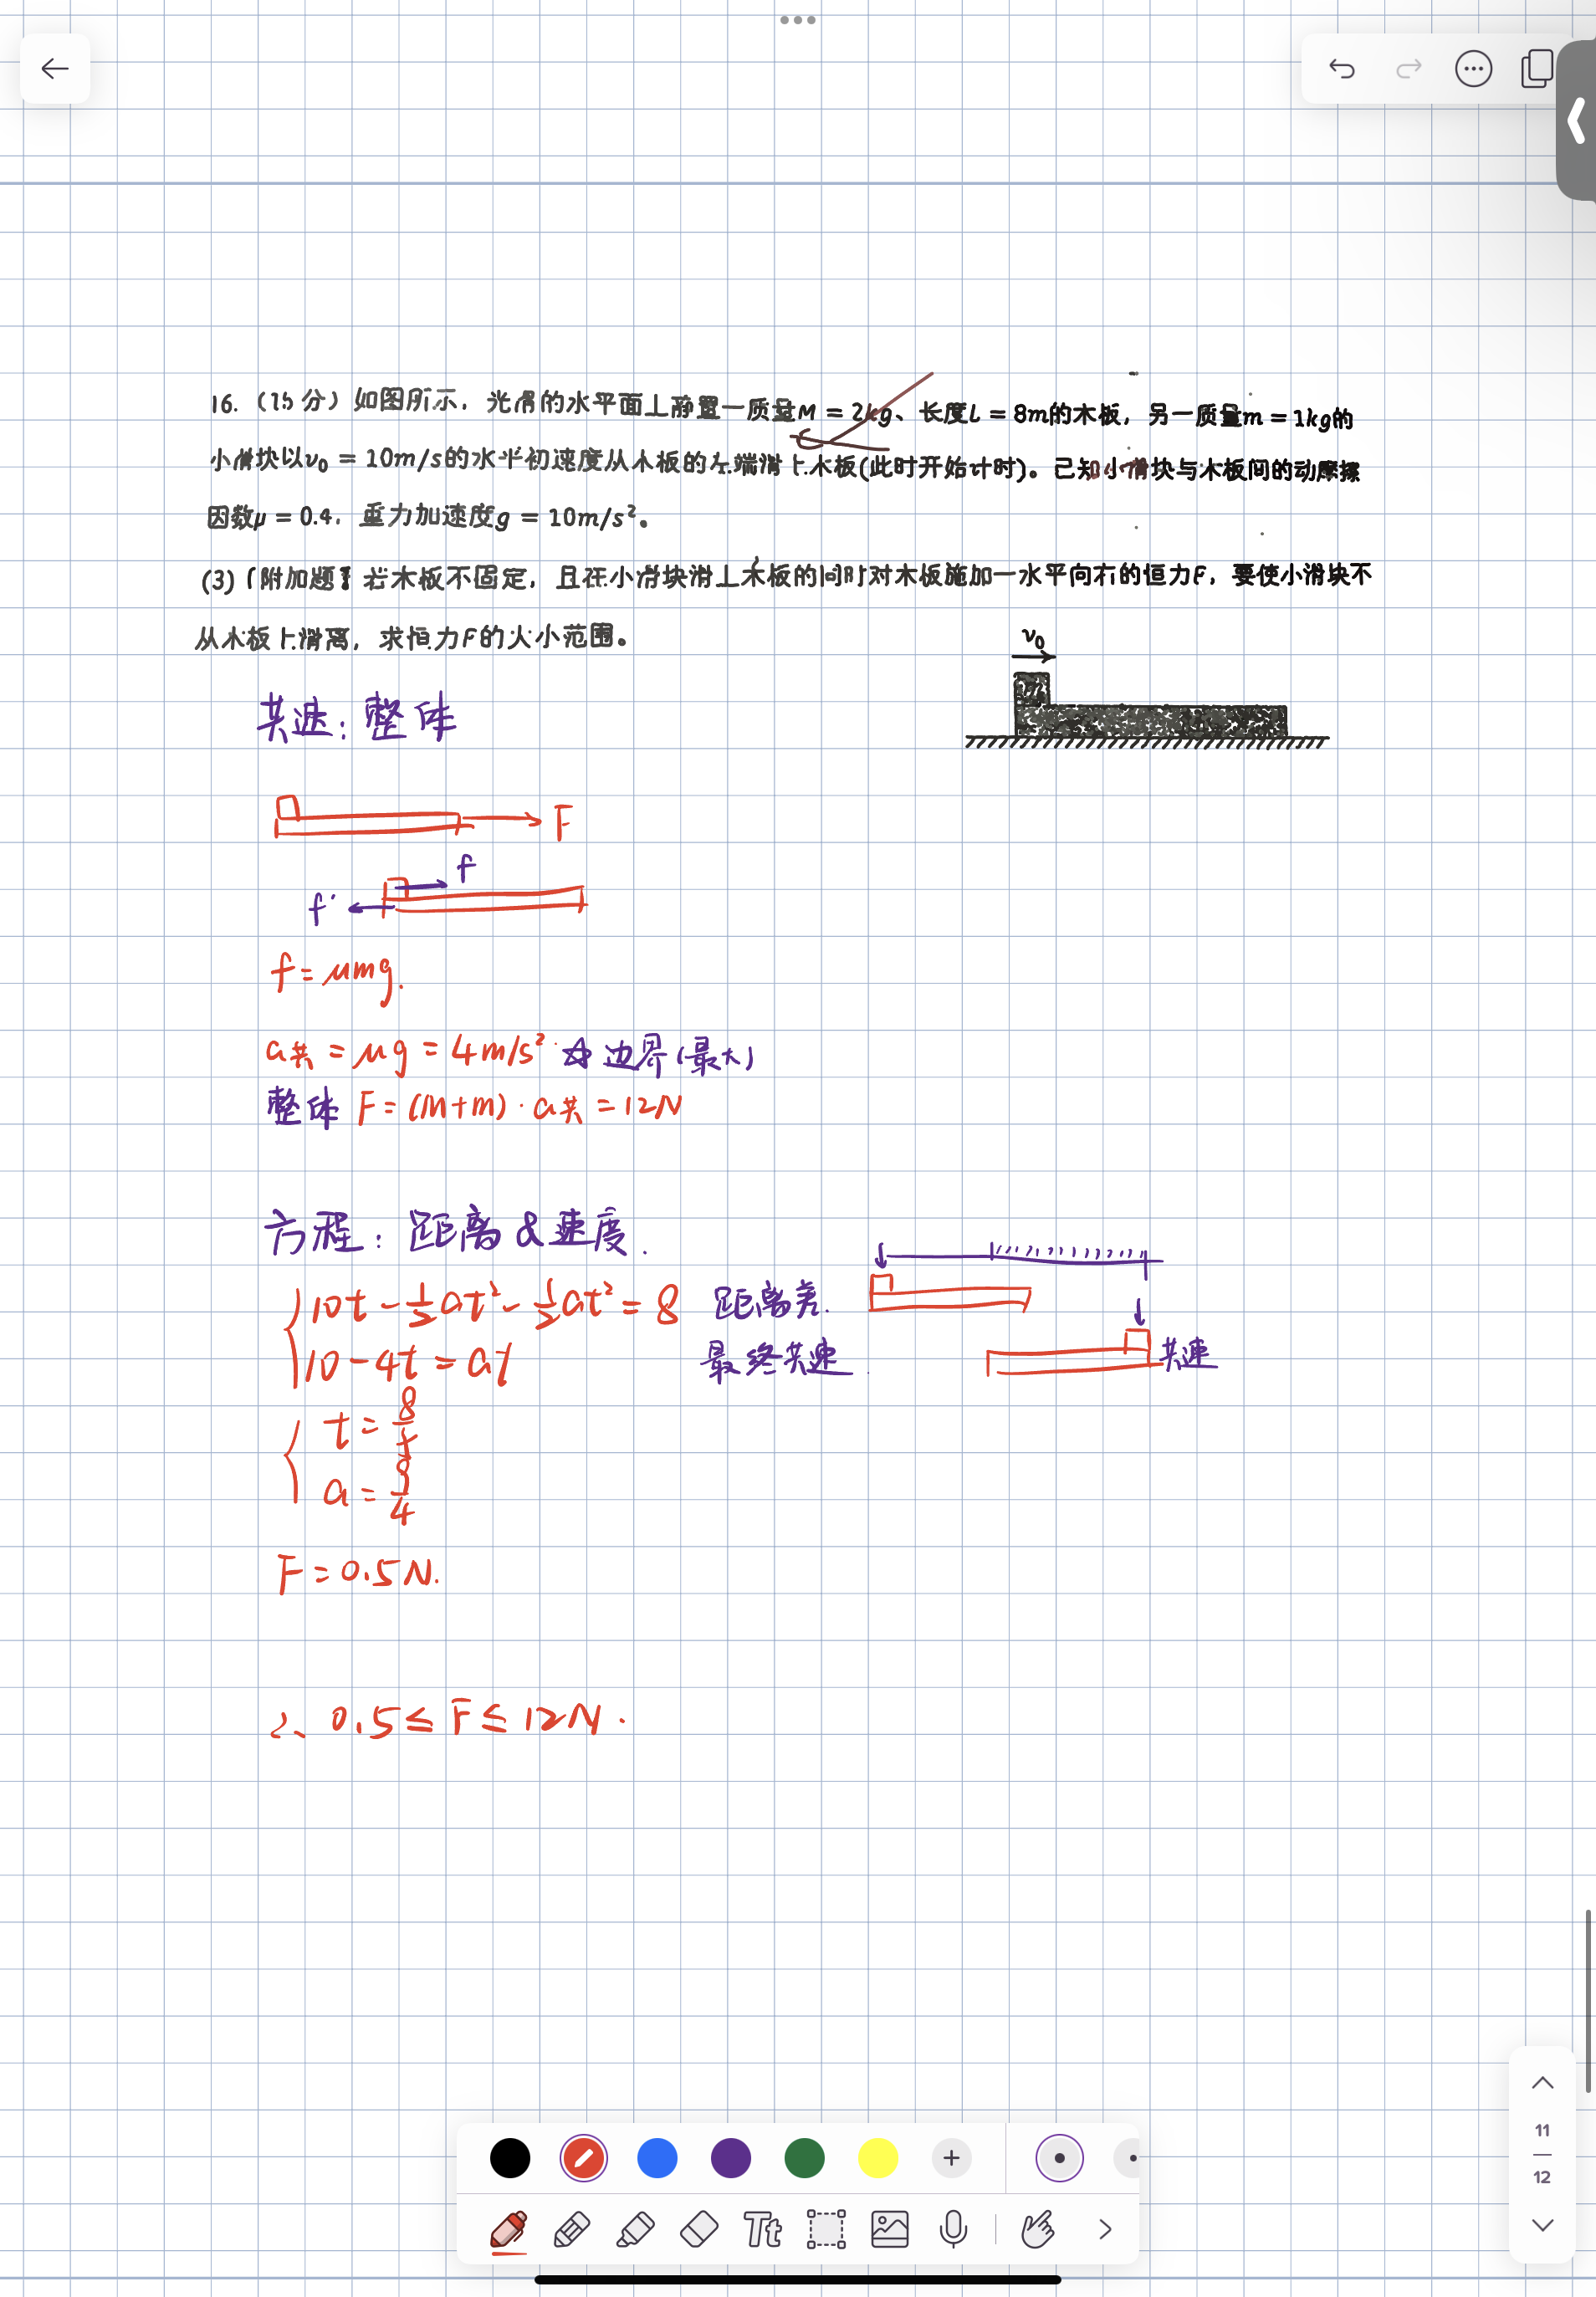 16.（15分）如图所示，光滑的水平面上静置一质量M = 2kg、长度L = 8m的木板，另一质量m = 1kg的
小滑块以v₀ = 10m/s的水平初速度从木板的左端滑上木板(此时开始计时)。已知小滑块与木板间的动摩擦
因数μ = 0.4，重力加速度g = 10m/s²。
(3)【附加题】若木板不固定，且在小滑块滑上木板的同时对木板施加一水平向右的恒力F，要使小滑块不
从木板上滑离，求恒力F的大小范围。
v₀
m
共速：整体
F
f
f'
f = μmg.
a共 = μg = 4m/s² ☆ 边界(最大)
整体 F = (M+m)·a共 = 12N
方程：距离&速度.
10t - ½at² - ½at² = 8 距离差.
10 - 4t = at 最终共速.
共速
t = 8/5
a = 9/4
F = 0.5N.
2、0.5 ≤ F ≤ 12N.
11
12
Tt